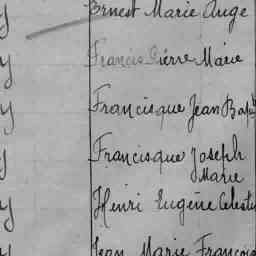 Ernest Marie Ange
Francis Pierre Marie
Francisque Jean Bapte
Francisque Joseph
Marie
Henri Eugène Célestin
Jean Marie François